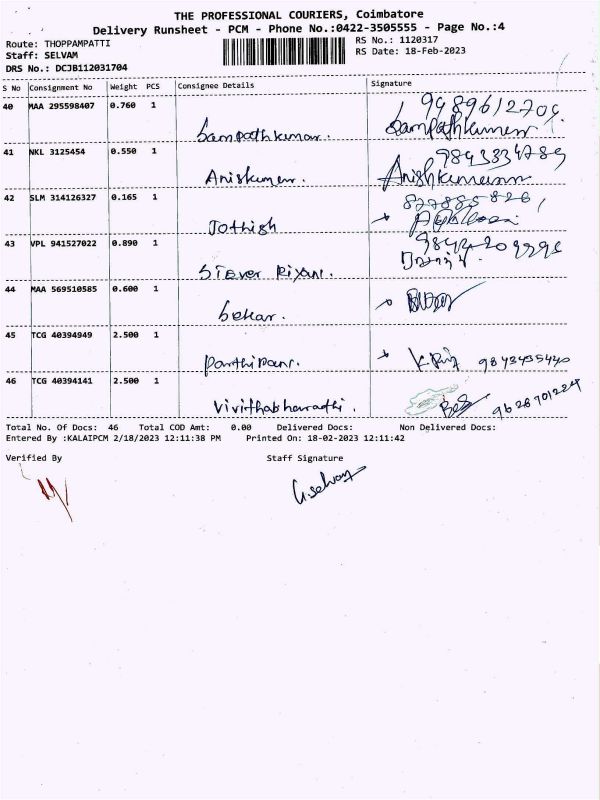 THE PROFESSIONAL COURIERS, Coimbatore
Delivery Runsheet - PCM - Phone No.:0422-3505555 - Page No.:4
Route: THOPPAMPATTI
RS No.: 1120317
Staff: SELVAM
RS Date: 18-Feb-2023
DRS No.: DCJB112031704
S No Consignment No Weight PCS Consignee Details Signature
40 MAA 295598407 0.760 1
Sampathkumar. Sampathkumar
41 NKL 3125454 0.550 1 9843334789
Aniskumar. Anishkumar
42 SLM 314126327 0.165 1
Jothish
43 VPL 941527022 0.890 1
44 MAA 569510585 0.600 1
Sekar.
45 TCG 40394949 2.500 1
9843435440
46 TCG 40394141 2.500 1
Vivithabharathi. 9628701224
Total No. Of Docs: 46 Total COD Amt: 0.00 Delivered Docs: Non Delivered Docs:
Entered By :KALAIPCM 2/18/2023 12:11:38 PM Printed On: 18-02-2023 12:11:42
Verified By Staff Signature
G.selvam